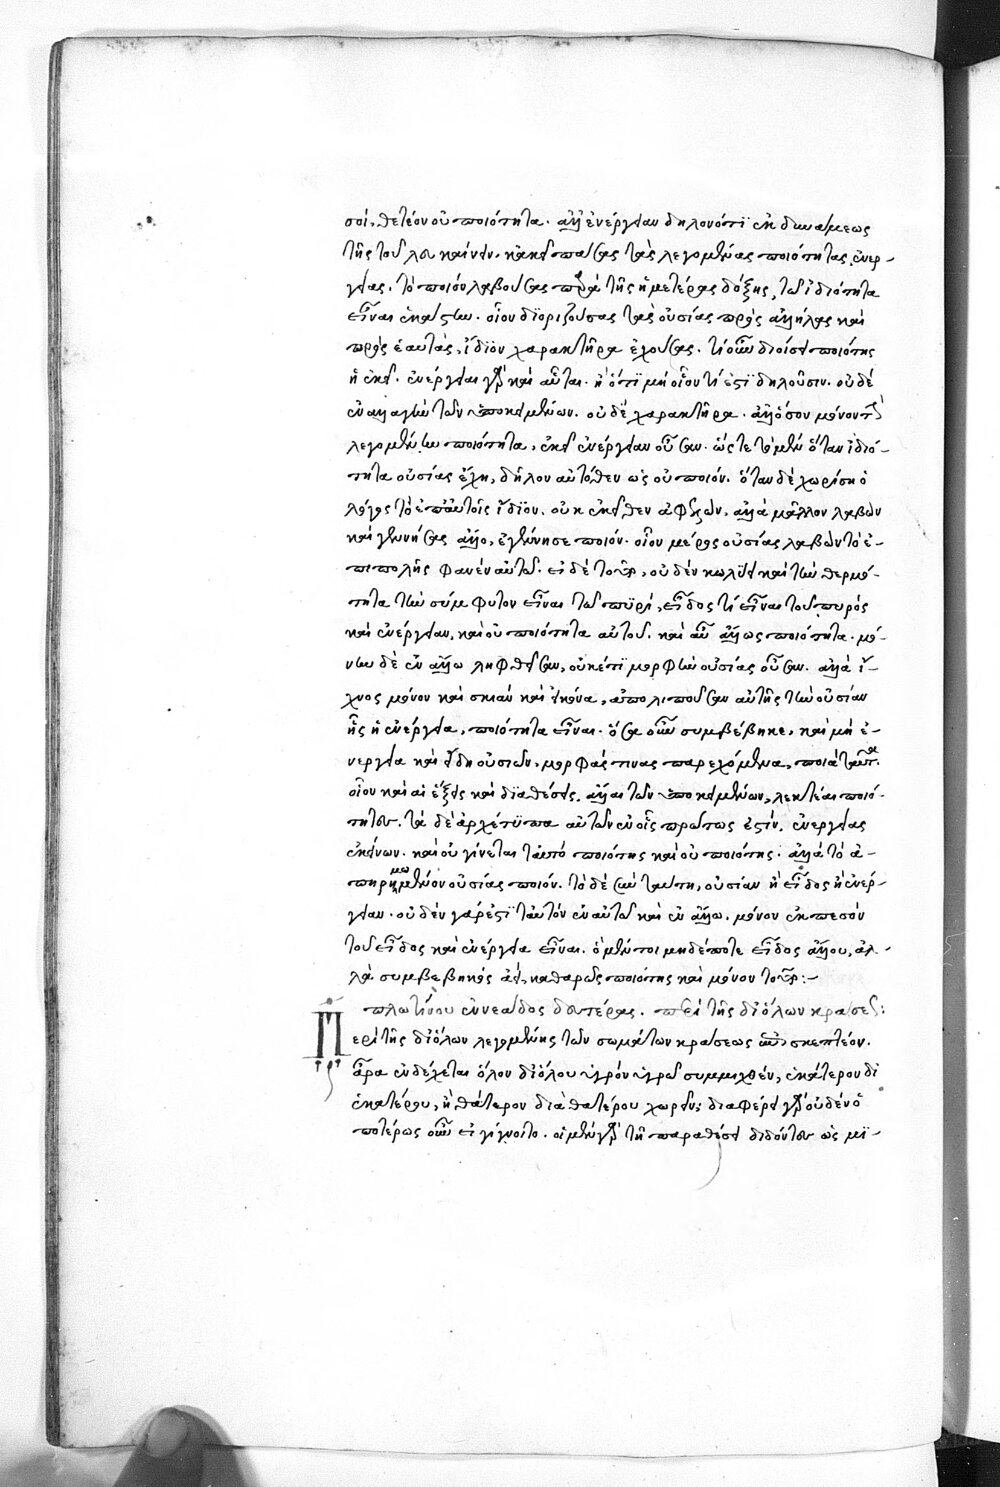 σοί, θετέον οὐ ποιότητα. ἀλλ' ἐνέργειαν δηλονότι ἐκ δυνάμεως
τῆς τοῦ λευκαίνειν. κἀκεῖ πάσας τὰς λεγομένας ποιότητας ἐνερ-
γείας. τὸ ποιὸν λαβούσας παρὰ τῆς ἡμετέρας δόξης, τῷ ἰδιότητα
εἶναι ἑκάστην. οἷον διοριζούσας τὰς οὐσίας πρὸς ἀλλήλας καὶ
πρὸς ἑαυτὰς, ἴδιον χαρακτῆρα ἐχούσας. τί οὖν διοίσει ποιότης
ἡ ἐκεῖ. ἐνέργειαι γὰρ καὶ αὗται. ἢ ὅτι μὴ οἷον τί ἐστι δηλοῦσιν. οὐδὲ
ἐναλλαγὴν τῶν ὑποκειμένων. οὐδὲ χαρακτῆρα. ἀλλ' ὅσον μόνον τὴν
λεγομένην ποιότητα, ἐκεῖ ἐνέργειαν οὖσαν. ὥστε τὸ μὲν ὅταν ἰδιό-
τητα οὐσίας ἔχῃ, δῆλον αὐτόθεν ὡς οὐ ποιόν. ὅταν δὲ χωρίσῃ ὁ
λόγος τὸ ἐπ' αὐτοῖς ἴδιον, οὐκ ἐκεῖθεν ἀφελών, ἀλλὰ μᾶλλον λαβὼν
καὶ γεννήσας ἄλλο, ἐγέννησε ποιόν. οἷον μέρος οὐσίας λαβὼν τὸ ἐ-
πιπολῆς φανὲν αὐτοῦ. εἰ δὲ τοῦτο, οὐδὲν κωλύει καὶ τὴν θερμό-
τητα τῷ σύμφυτον εἶναι τῷ πυρὶ, εἶδός τι εἶναι τοῦ πυρὸς
καὶ ἐνέργειαν, καὶ οὐ ποιότητα αὐτοῦ. καὶ αὖ ἄλλως ποιότητα. μό-
νην δὲ ἐν ἄλλῳ ληφθεῖσαν, οὐκέτι μορφὴν οὐσίας οὖσαν. ἀλλὰ ἴ-
χνος μόνον καὶ σκιὰν καὶ εἰκόνα, ἀπολιποῦσαν αὐτῆς τὴν οὐσίαν
ἧς ἡ ἐνέργεια, ποιότητα εἶναι. ὅσα οὖν συμβέβηκε, καὶ μὴ ἐ-
νέργεια καὶ εἴδη οὐσιῶν, μορφάς τινας παρεχόμενα, ποιὰ ταῦτα.
οἷον καὶ αἱ ἕξεις καὶ διαθέσεις, ἄλλαι τῶν ὑποκειμένων, λεκτέαι ποιό-
τητες. τὰ δὲ ἀρχέτυπα αὐτῶν ἐν οἷς πρώτως ἐστίν, ἐνεργείας
ἐκείνων. καὶ οὐ γίνεται ταὐτὸ ποιότης καὶ οὐ ποιότης. ἀλλὰ τὸ ἀ-
πηρημωμένον οὐσίας ποιόν. τὸ δὲ σὺν ταύτῃ, οὐσίαν ἢ εἶδος ἢ ἐνέρ-
γειαν. οὐδὲν γάρ ἐστι ταὐτὸν ἐν αὐτῷ καὶ ἐν ἄλλῳ. μόνον ἐκπεσὸν
τοῦ εἶδος καὶ ἐνέργεια εἶναι. ὁ μέντοι μηδέποτε εἶδος ἄλλου, ἀλ-
λὰ συμβεβηκὸς ἀεί, καθαρῶς ποιότης καὶ μόνον τοῦτο:-
πλωτίνου ἐννεάδος δευτέρας. περὶ τῆς δι' ὅλων κράσεως:
Περὶ τῆς δι' ὅλων λεγομένης τῶν σωμάτων κράσεως ἐπισκεπτέον.
ἆρα ἐνδέχεται ὅλον δι' ὅλου ὑγρὸν ὑγρῷ συμμιχθέν, ἑκάτερον δι'
ἑκατέρου, ἢ θάτερον διὰ θατέρου χωρεῖν; διαφέρει γὰρ οὐδὲν ὁ
ποτέρως οὖν εἰ γίγνοιτο. οἱ μὲν γὰρ τῇ παραθέσει διδόντες ὡς μι-